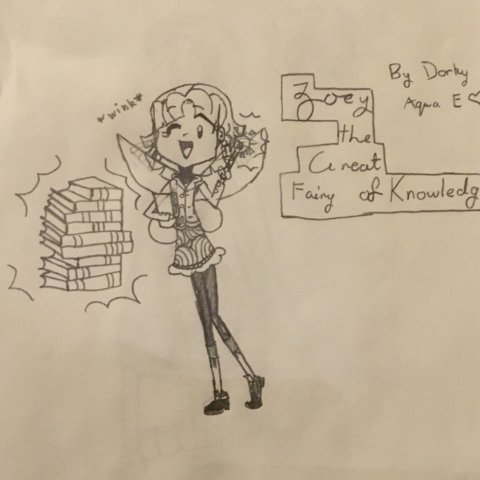 *wink*
Zoey
the
Great
Fairy of Knowledg
By Dorky
Aqua E